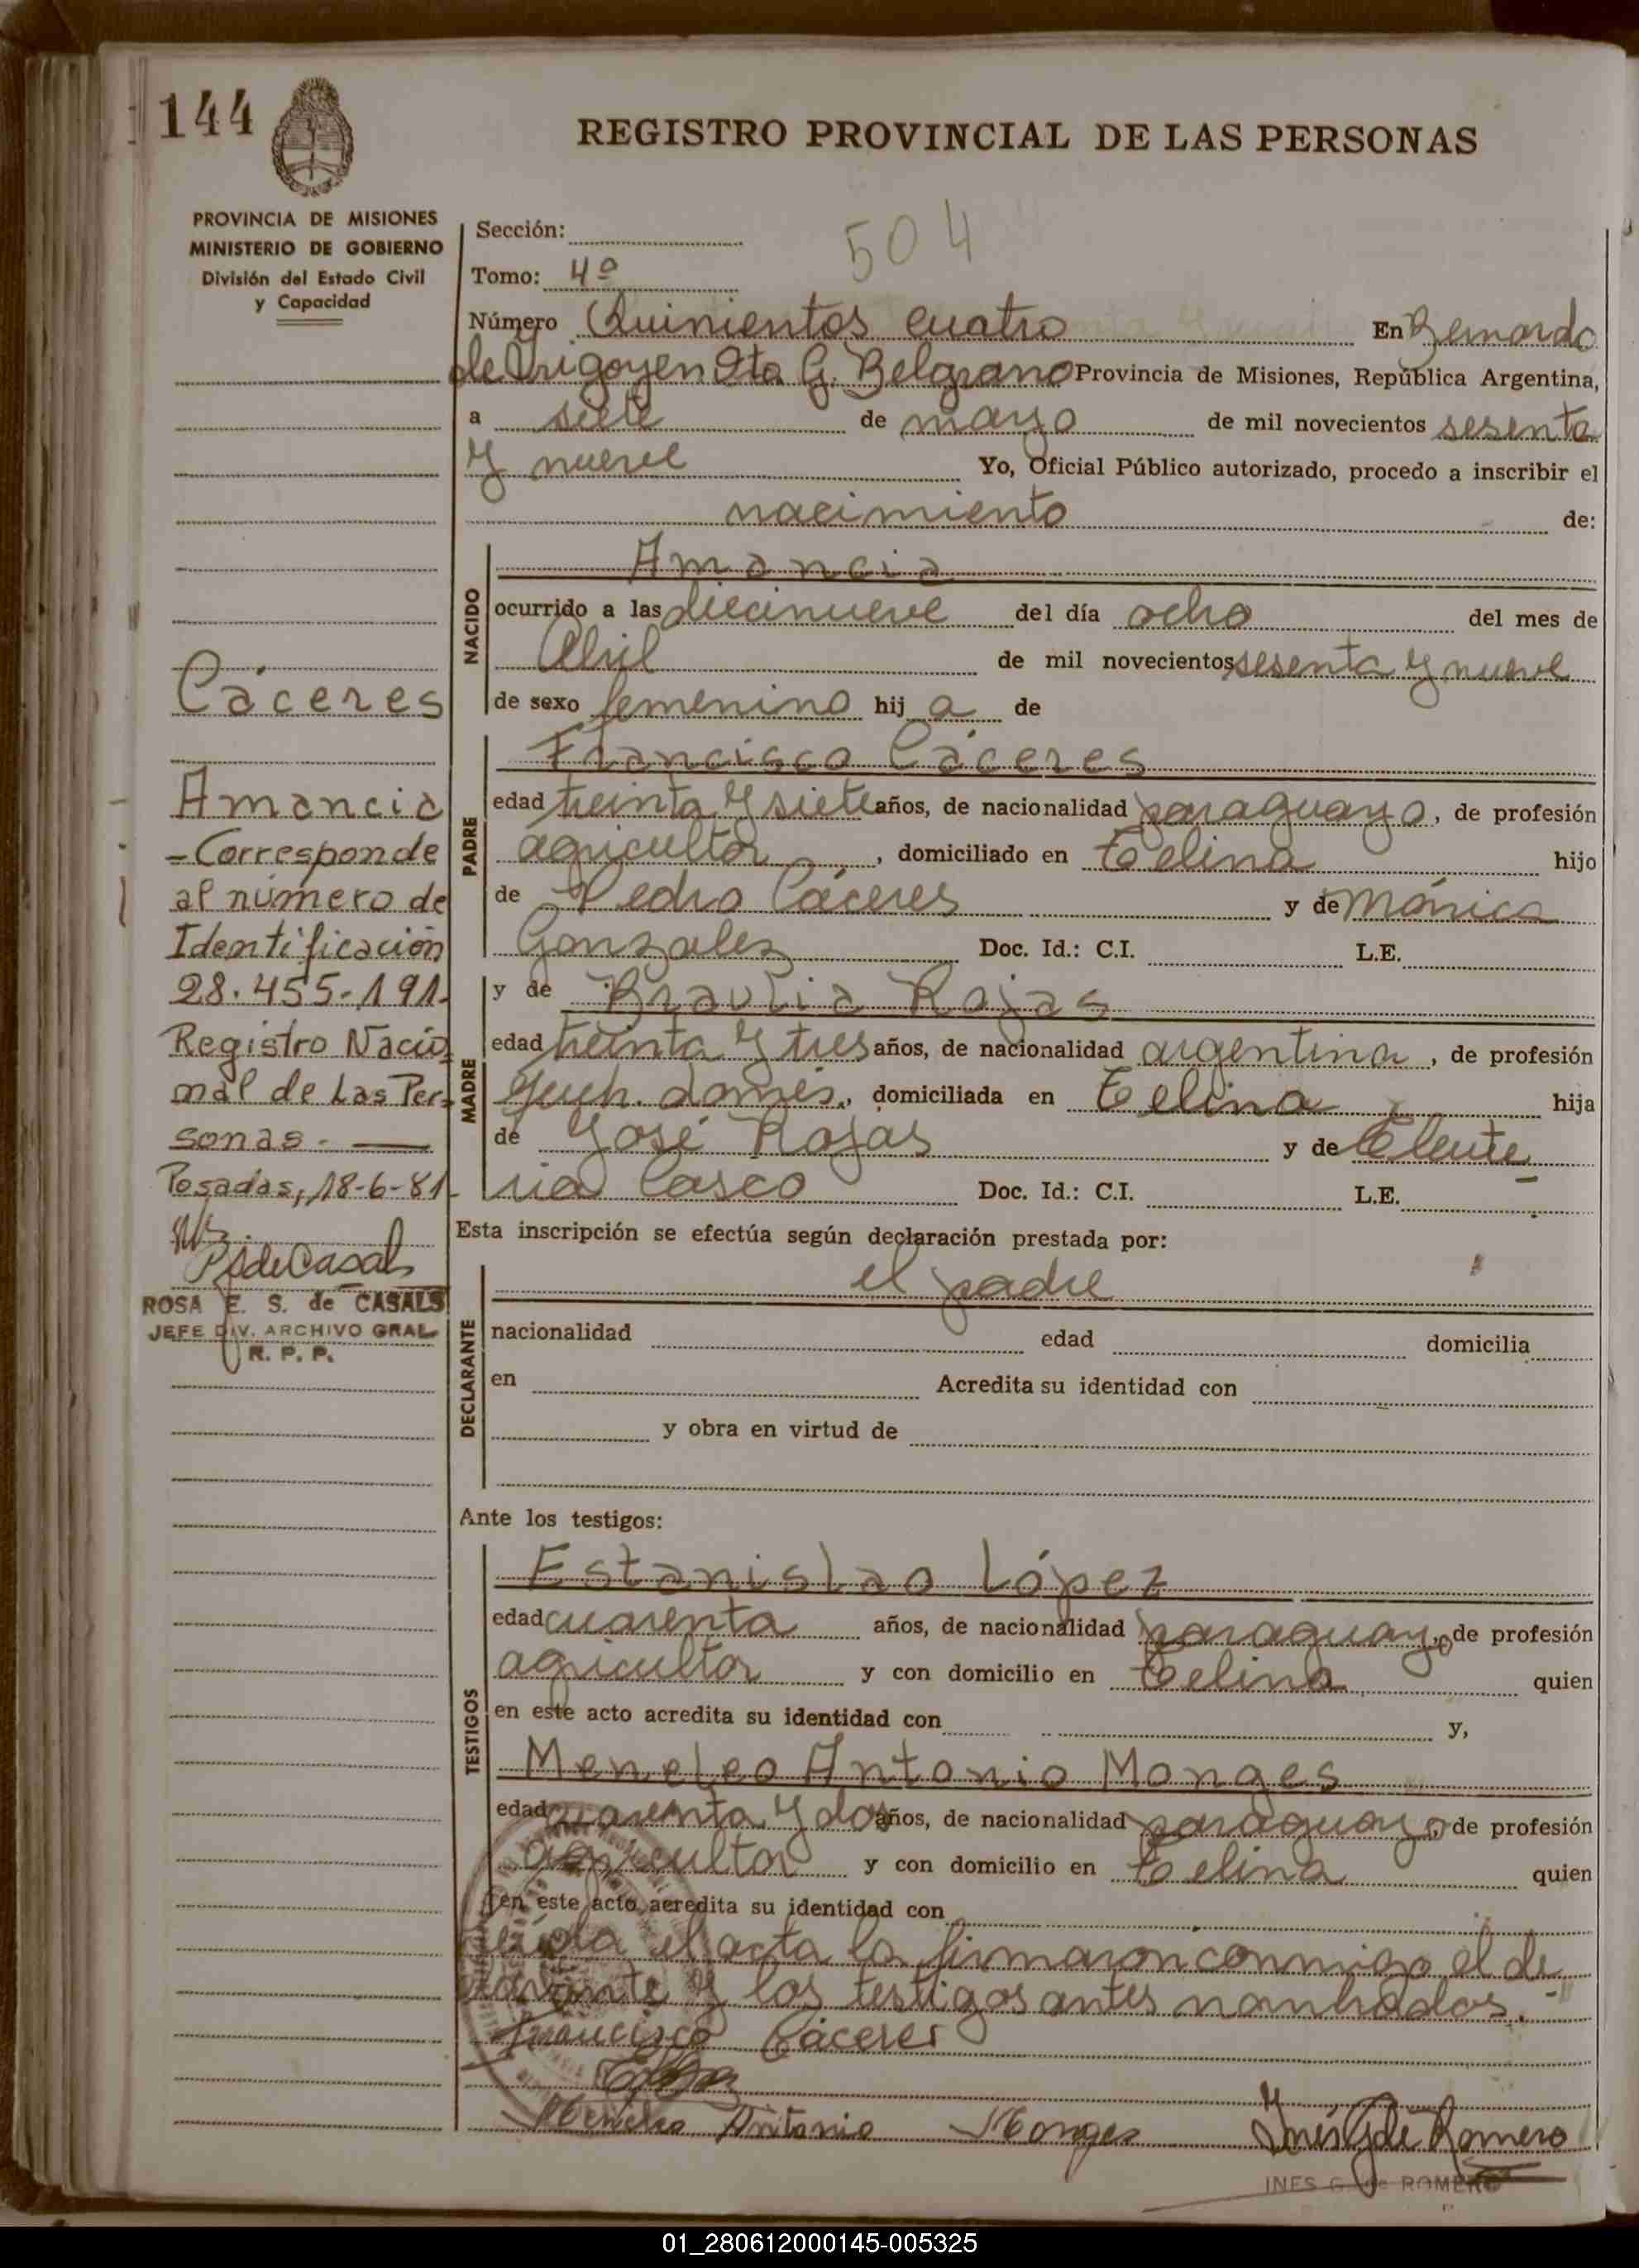 144
REGISTRO PROVINCIAL DE LAS PERSONAS
PROVINCIA DE MISIONES
MINISTERIO DE GOBIERNO
División del Estado Civil
y Capacidad
Cáceres
Amancia
-Corresponde
al número de
Identificación
28.455.191.
Registro Nacio
nal de Las Per-
sonas. —
Posadas, 18-6-81-
ROSA E. S. de CASALS
JEFE DIV. ARCHIVO GRAL
R. P. P.
Sección:
504
Tomo: 4º
Número Quinientos cuatro En Bernardo
de Irigoyen Dto G. Belgrano Provincia de Misiones, República Argentina,
a siete de mayo de mil novecientos sesenta
y nueve Yo, Oficial Público autorizado, procedo a inscribir el
nacimiento de:
NACIDO
Amancia
ocurrido a las diecinueve del día ocho del mes de
Abril de mil novecientos sesenta y nueve
de sexo femenino hij a de
PADRE
Francisco Cáceres
edad treinta y siete años, de nacionalidad paraguayo, de profesión
agricultor, domiciliado en Celina hijo
de Pedro Cáceres y de Mónica
Gonzalez Doc. Id.: C.I. L.E.
MADRE
y de Braulia Rojas
edad treinta y tres años, de nacionalidad argentina, de profesión
queh. domés., domiciliada en Celina hija
de José Rojas y de Eleute
ria Casco Doc. Id.: C.I. L.E.
Esta inscripción se efectúa según declaración prestada por:
DECLARANTE
el padre
nacionalidad edad domicilia
en Acredita su identidad con
y obra en virtud de
Ante los testigos:
TESTIGOS
Estanislao López
edad cuarenta años, de nacionalidad paraguayo, de profesión
agricultor y con domicilio en Celina quien
en este acto acredita su identidad con y,
Meneleo Antonio Monges
edad cuarenta y dos años, de nacionalidad paraguayo, de profesión
agricultor y con domicilio en Celina quien
en este acto acredita su identidad con
Leída el acta la firmaron conmigo el de
clarante y los testigos antes nombrados.-
Francisco Cáceres
Meneleo Antonio Monges Inés G de Romero
INES G. de ROMERO
01_280612000145-005325